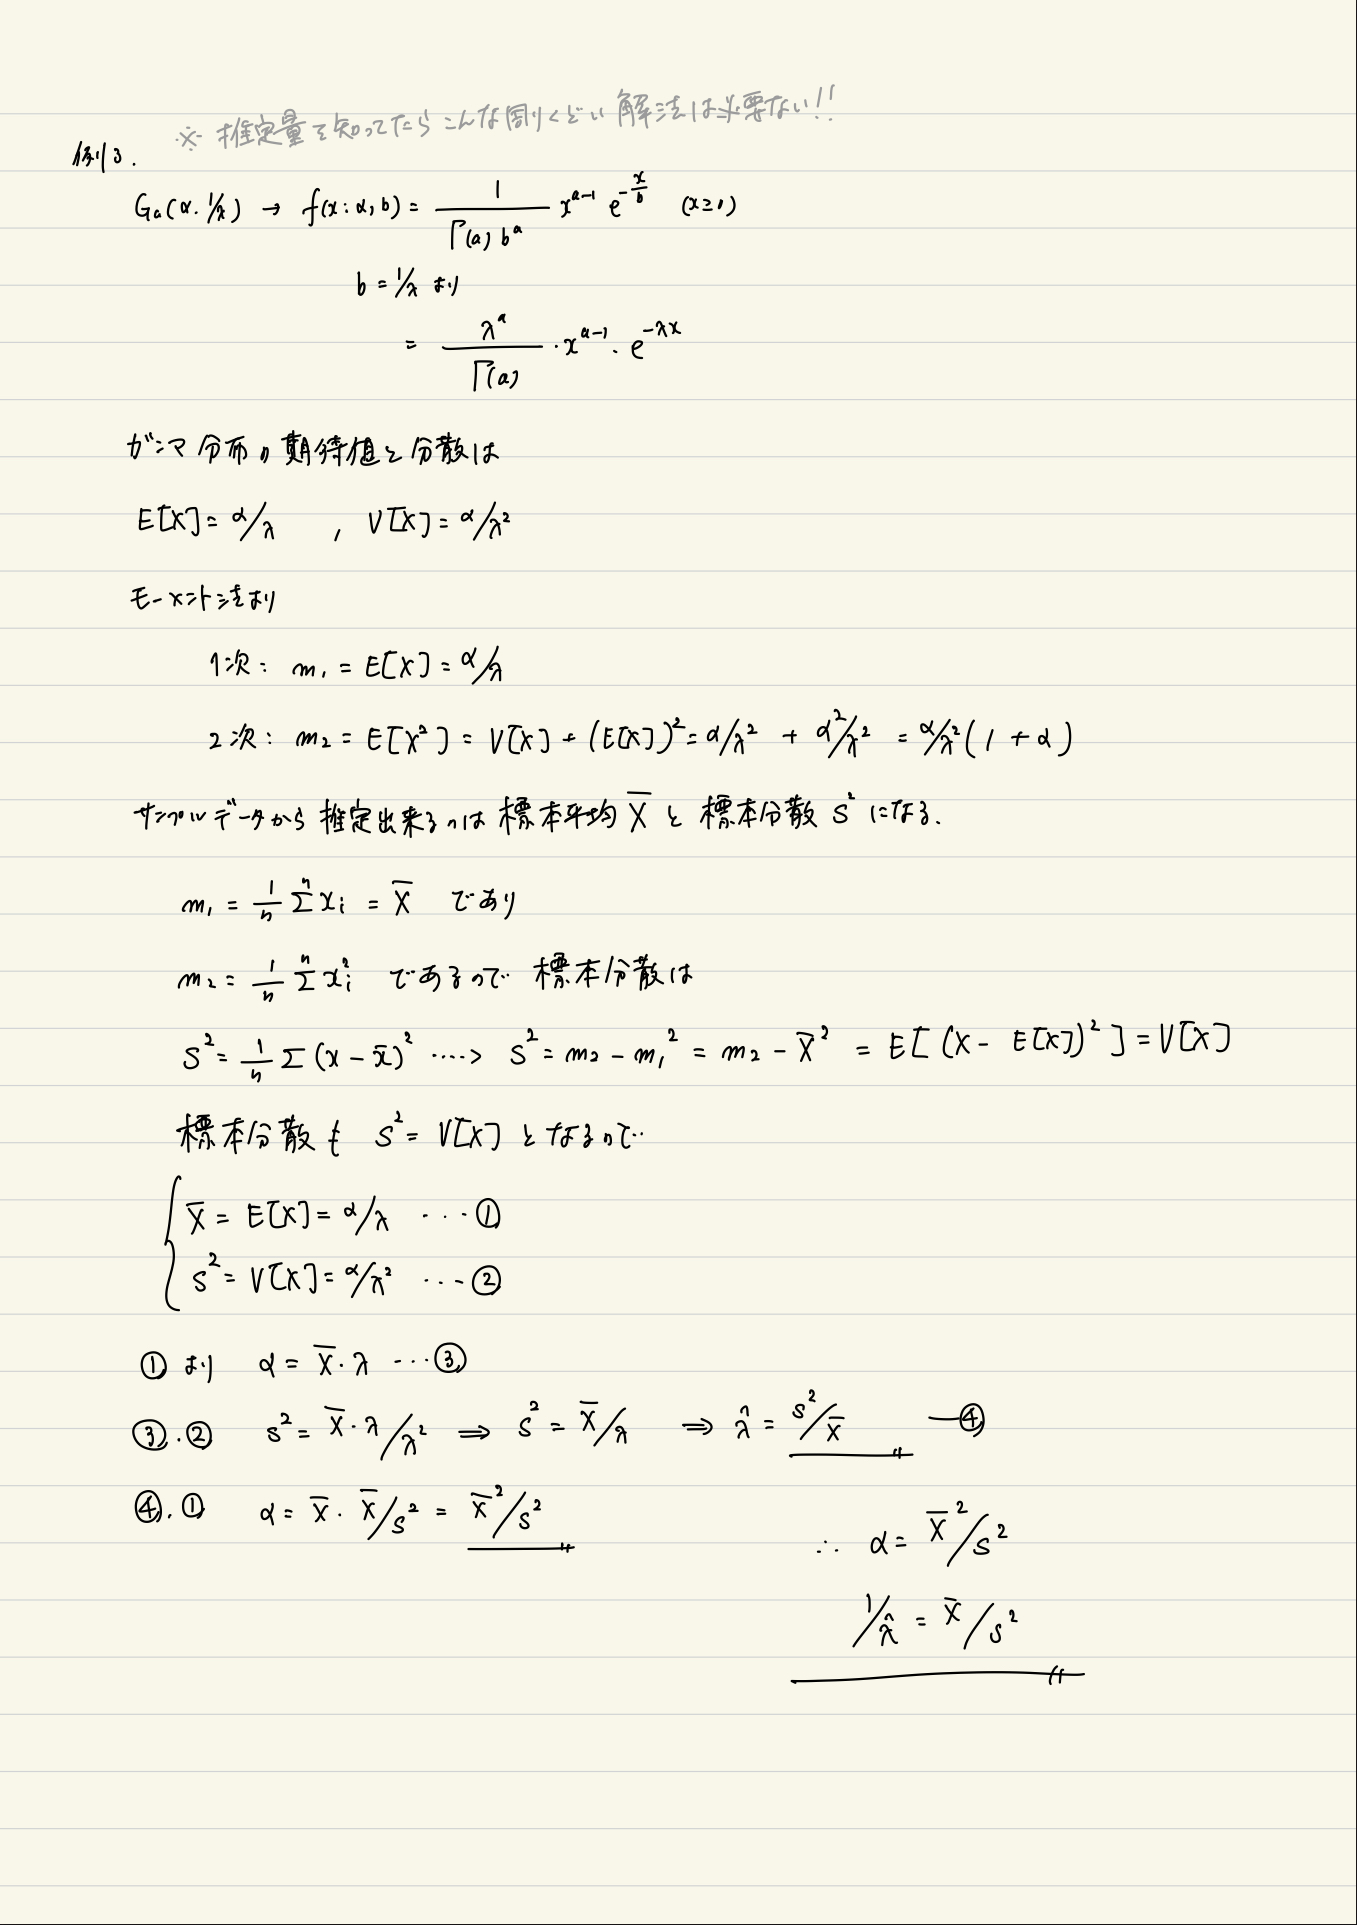 ※ 推定量を知ってたらこんな回りくどい解法は必要ない!!
例3.
Ga(α. 1/λ) → f(x : α, b) = 1/(Γ(a) b^a) x^(a-1) e^(-x/b) (x≧0)
b = 1/λ より
= λ^a/Γ(a) ・ x^(a-1) ・ e^(-λx)
ガンマ分布の期待値と分散は
E[X] = α/λ , V[X] = α/λ²
モーメント法より
1次: m₁ = E[X] = α/λ
2次: m₂ = E[X²] = V[X] + (E[X])² = α/λ² + α²/λ² = α/λ² (1 + α)
サンプルデータから推定出来るのは標本平均 X̄ と標本分散 S² になる.
m₁ = 1/n Σ^n xᵢ = X̄ であり
m₂ = 1/n Σ^n xᵢ² であるので 標本分散は
S² = 1/n Σ (x - x̄)² ····> S² = m₂ - m₁² = m₂ - X̄² = E[(X - E[X])²] = V[X]
標本分散も S² = V[X] となるので
{ X̄ = E[X] = α/λ ··· ①
S² = V[X] = α/λ² ··· ②
① より α = X̄・λ ··· ③
③.② S² = X̄・λ/λ² ⇒ S² = X̄/λ ⇒ λ̂ = S²/X̄ — ④
④.① α = X̄・X̄/S² = X̄²/S²
∴ α = X̄²/S²
1/λ̂ = X̄/S²